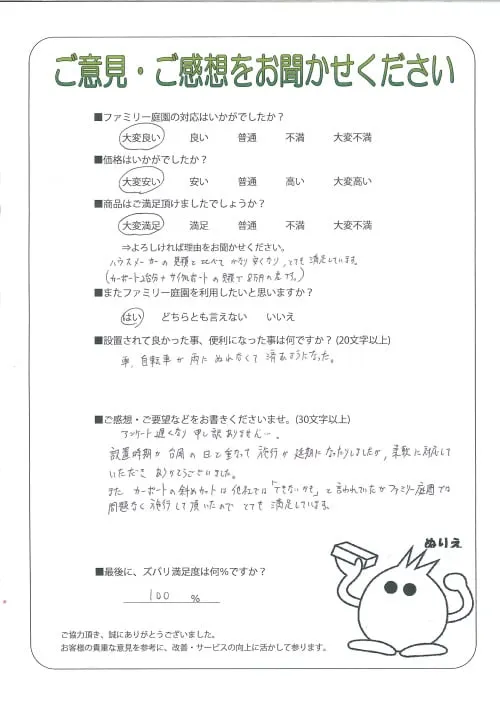 ご意見・ご感想をお聞かせください
■ファミリー庭園の対応はいかがでしたか？
大変良い 良い 普通 不満 大変不満
■価格はいかがでしたか？
大変安い 安い 普通 高い 大変高い
■商品はご満足頂けましたでしょうか？
大変満足 満足 普通 不満 大変不満
⇒よろしければ理由をお聞かせください。
ハウスメーカーの見積と比べて かなり安くなり、とても満足しています。
(カーポート2台分＋サイクルポートの見積で8万円の差です。)
■またファミリー庭園を利用したいと思いますか？
はい どちらとも言えない いいえ
■設置されて良かった事、便利になった事は何ですか？ (20文字以上)
車、自転車が雨にぬれなくて済むようになった。
■ご感想・ご要望などをお書きくださいませ。(30文字以上)
アンケート遅くなり申し訳ありません…。
設置時期が台風の日と重なって施行が延期になったりしましたが、柔軟に対応して
いただき ありがとうございました。
また カーポートの斜めカットは他社では「できないかも」と言われていたがファミリー庭園では
問題なく施行して頂いたので とても満足しています。
ぬりえ
■最後に、ズバリ満足度は何％ですか？
100 ％
ご協力頂き、誠にありがとうございました。
お客様の貴重な意見を参考に、改善・サービスの向上に活かして参ります。